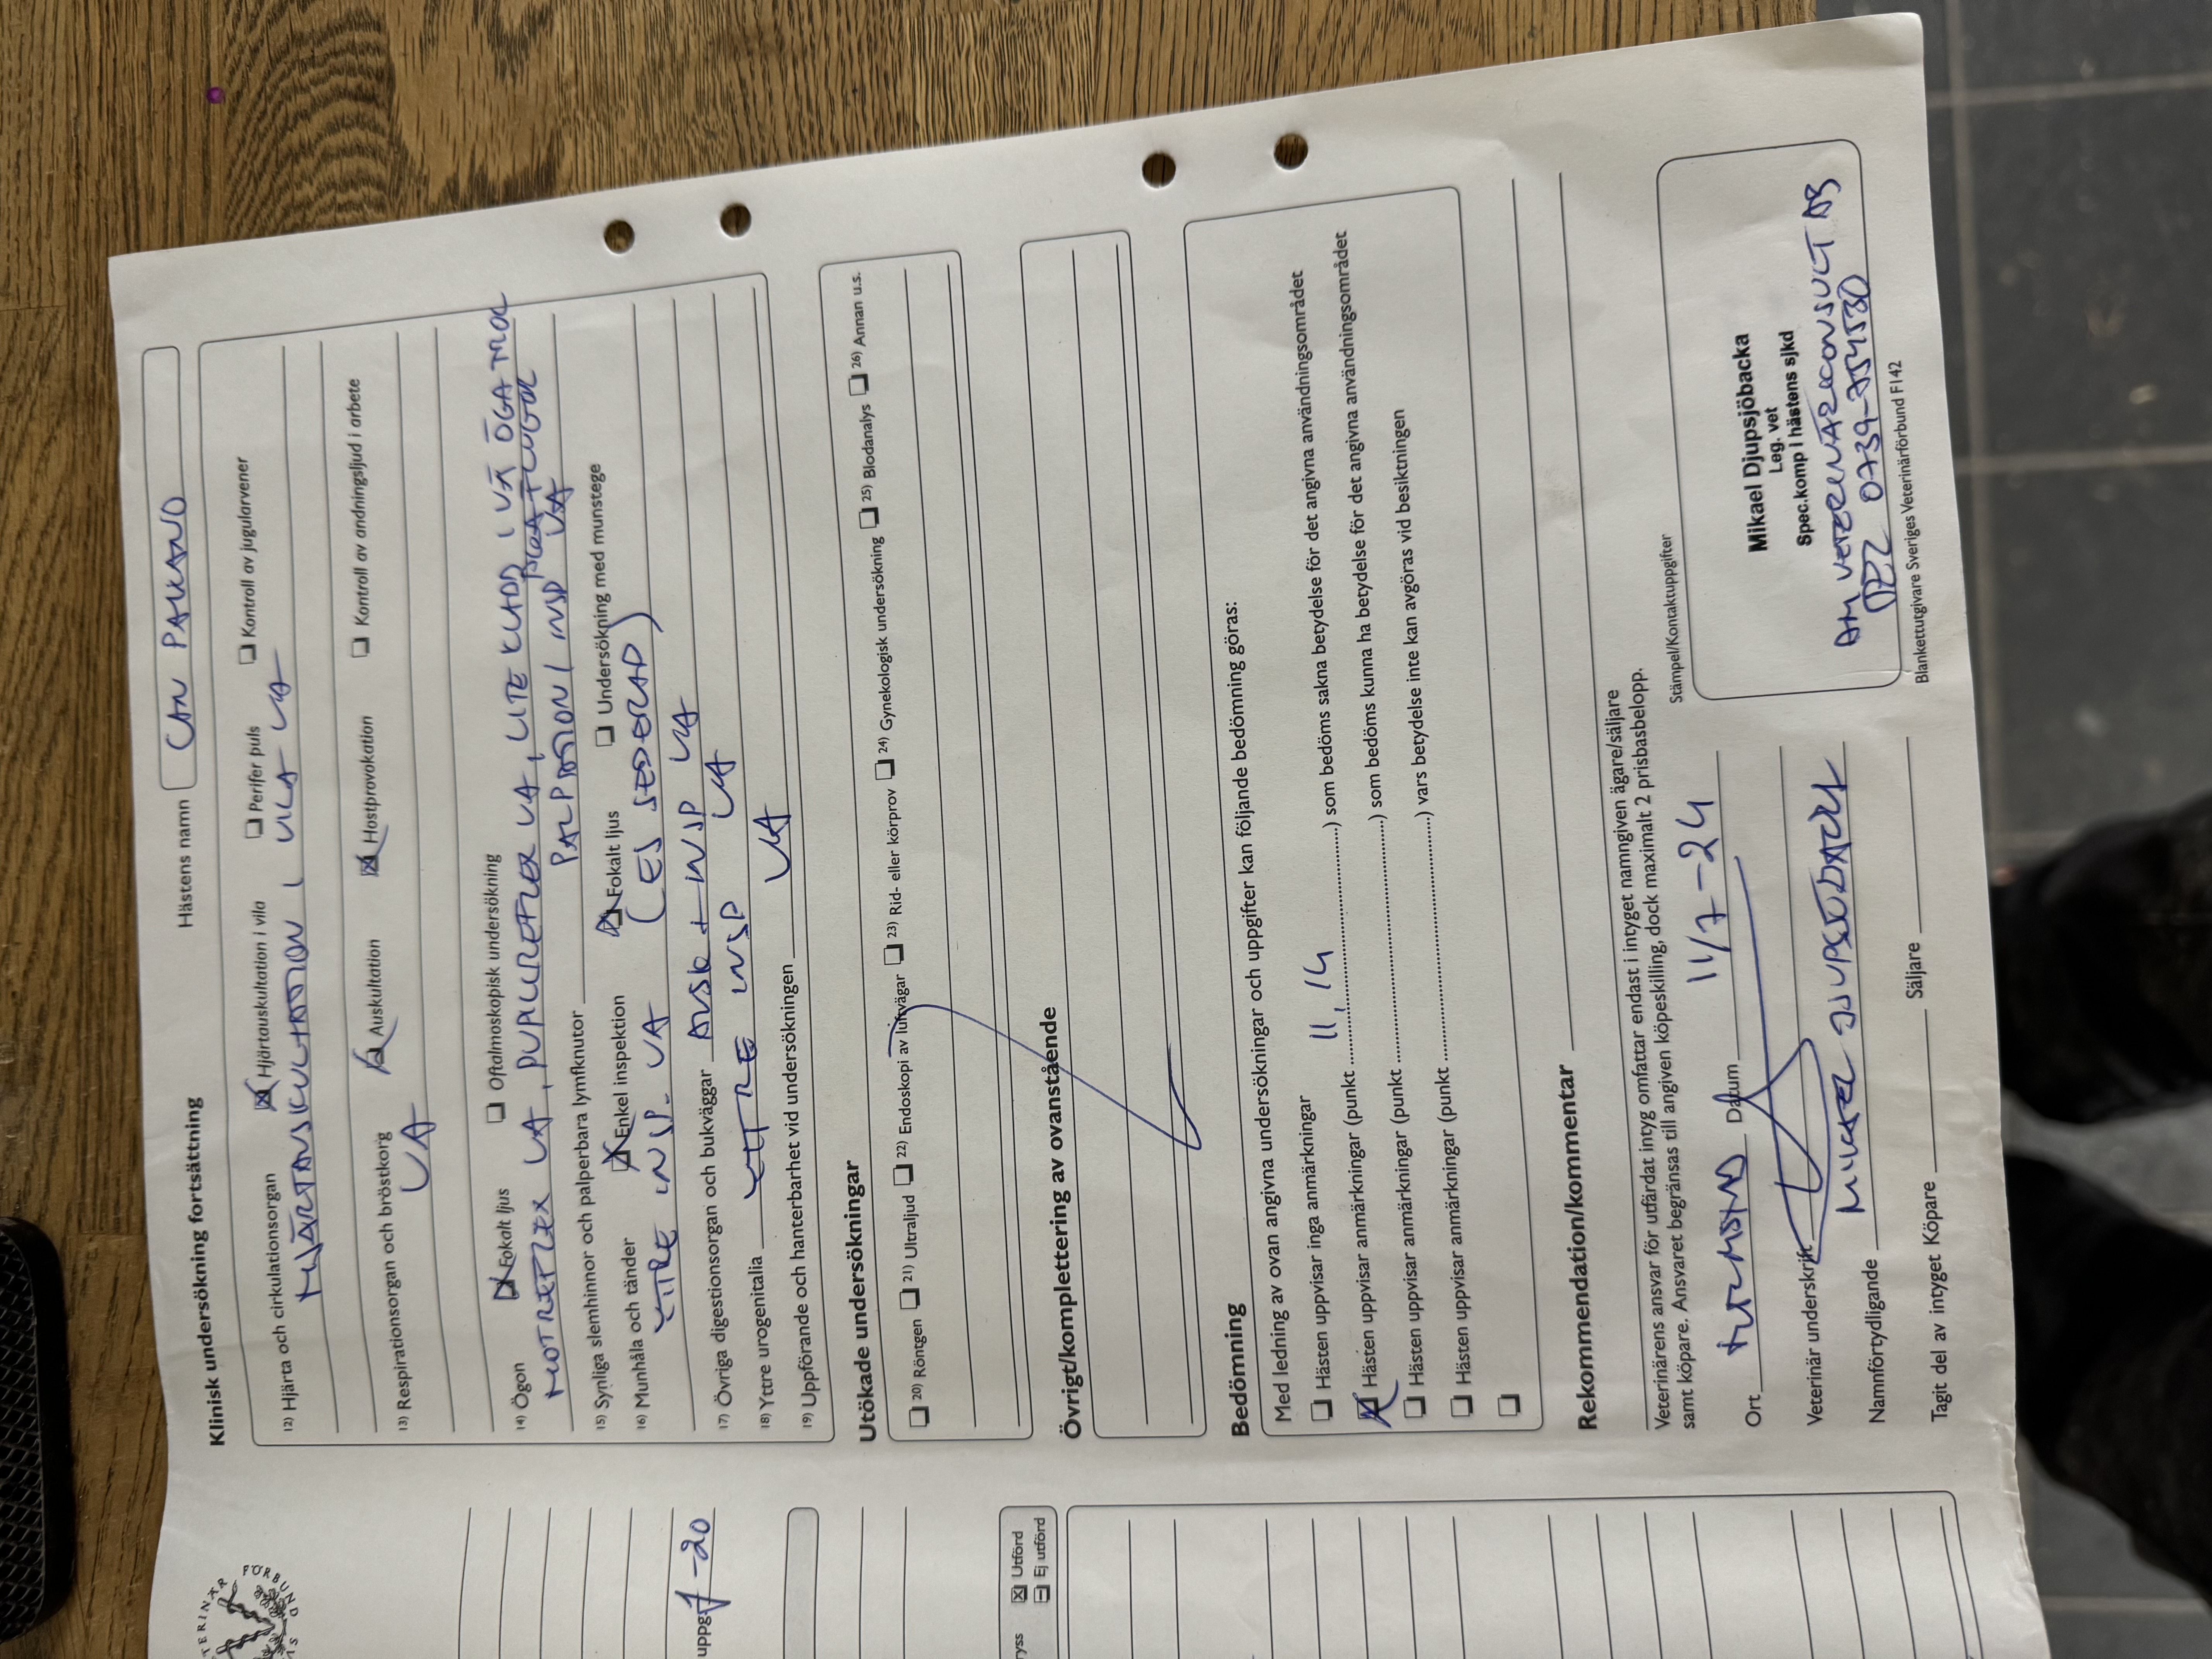 Hästens namn CON PAUKANO
Klinisk undersökning fortsättning
12) Hjärta och cirkulationsorgan ☒ Hjärtauskultation i vila ☐ Perifer puls ☐ Kontroll av jugularvener
HJÄRTAUSKULTATION I VILA UA
13) Respirationsorgan och bröstkorg ☒ Auskultation ☒ Hostprovokation ☐ Kontroll av andningsljud i arbete
UA
14) Ögon ☒ Fokalt ljus ☐ Oftalmoskopisk undersökning
HOTREFLEX UA, PUPILLREFLEX UA, LITE KLADD I VÄ ÖGA TROL
PGA FLUGOR
15) Synliga slemhinnor och palperbara lymfknutor PALPATION / INSP UA
16) Munhåla och tänder ☒ Enkel inspektion ☒ Fokalt ljus ☐ Undersökning med munstege
YTTRE INSP. UA (EJ SEDERAD)
17) Övriga digestionsorgan och bukväggar AUSK + INSP UA
18) Yttre urogenitalia YTTRE INSP UA
19) Uppförande och hanterbarhet vid undersökningen UA
Utökade undersökningar
☐ 20) Röntgen ☐ 21) Ultraljud ☐ 22) Endoskopi av luftvägar ☐ 23) Rid- eller körprov ☐ 24) Gynekologisk undersökning ☐ 25) Blodanalys ☐ 26) Annan u.s.
Övrigt/komplettering av ovanstående
Bedömning
Med ledning av ovan angivna undersökningar och uppgifter kan följande bedömning göras:
☐ Hästen uppvisar inga anmärkningar
☒ Hästen uppvisar anmärkningar (punkt 11, 14) som bedöms sakna betydelse för det angivna användningsområdet
☐ Hästen uppvisar anmärkningar (punkt ) som bedöms kunna ha betydelse för det angivna användningsområdet
☐ Hästen uppvisar anmärkningar (punkt ) vars betydelse inte kan avgöras vid besiktningen
☐
Rekommendation/kommentar
Veterinärens ansvar för utfärdat intyg omfattar endast i intyget namngiven ägare/säljare
samt köpare. Ansvaret begränsas till angiven köpeskilling, dock maximalt 2 prisbasbelopp.
Ort Datum 11/7-24
Stämpel/Kontaktuppgifter
Veterinär underskrift
Mikael Djupsjöbacka
Leg. vet
Spec.komp i hästens sjkd
Namnförtydligande MIKAEL DJUPSJÖBACKA
VETERINÄRKONSULT AB
Tagit del av intyget Köpare Säljare
Blankettutgivare Sveriges Veterinärförbund F142
uppg. 7-20
ryss ☒ Utförd
☐ Ej utförd
TERINÄR FÖRBUND